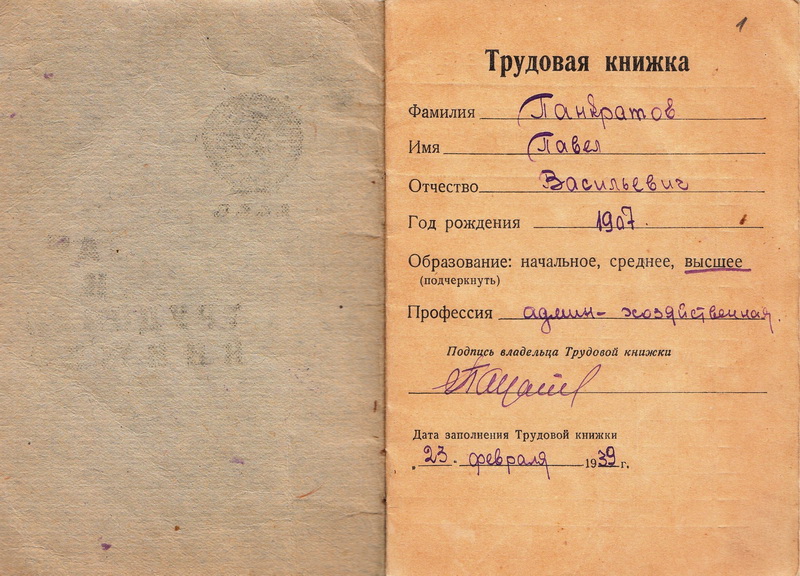 1
Трудовая книжка
Фамилия Панкратов
Имя Павел
Отчество Васильевич
Год рождения 1907.
Образование: начальное, среднее, высшее
(подчеркнуть)
Профессия админ-хозяйственная.
Подпись владельца Трудовой книжки
Дата заполнения Трудовой книжки
23. февраля 1939 г.